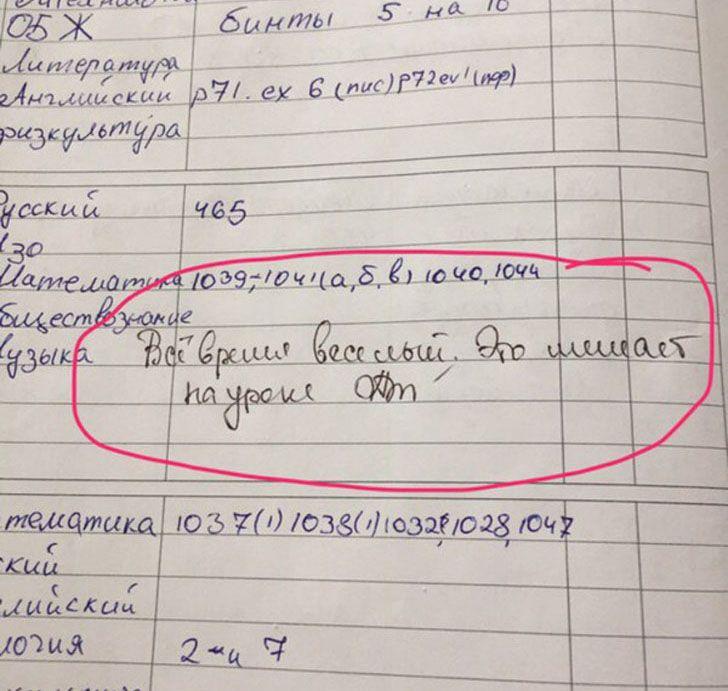 ОБЖ бинты 5 на 10
Литература
Английский p71. ex 6 (пис) p72 ex 1 (пер)
физкультура
Русский 465
Изо
Математика 1039; 1041 (а, б, в) 1040, 1044
обществознание
музыка Всё время веселый. Это мешает
на уроке
тематика 1037(1) 1038(1) 1032, 1028, 1047
ский
лийский
логия 2 и 7